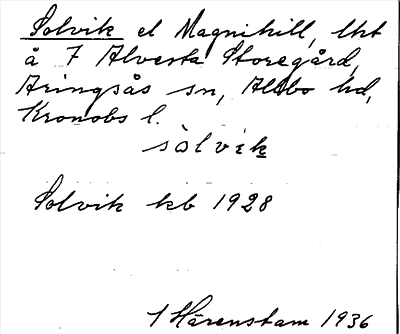 Solvik el Magnihill, lht
å 7 Alvesta Storegård,
Aringsås sn, Allbo hd,
Kronobs l.
sòlvik
Solvik kb 1928
1 Härenstam 1936